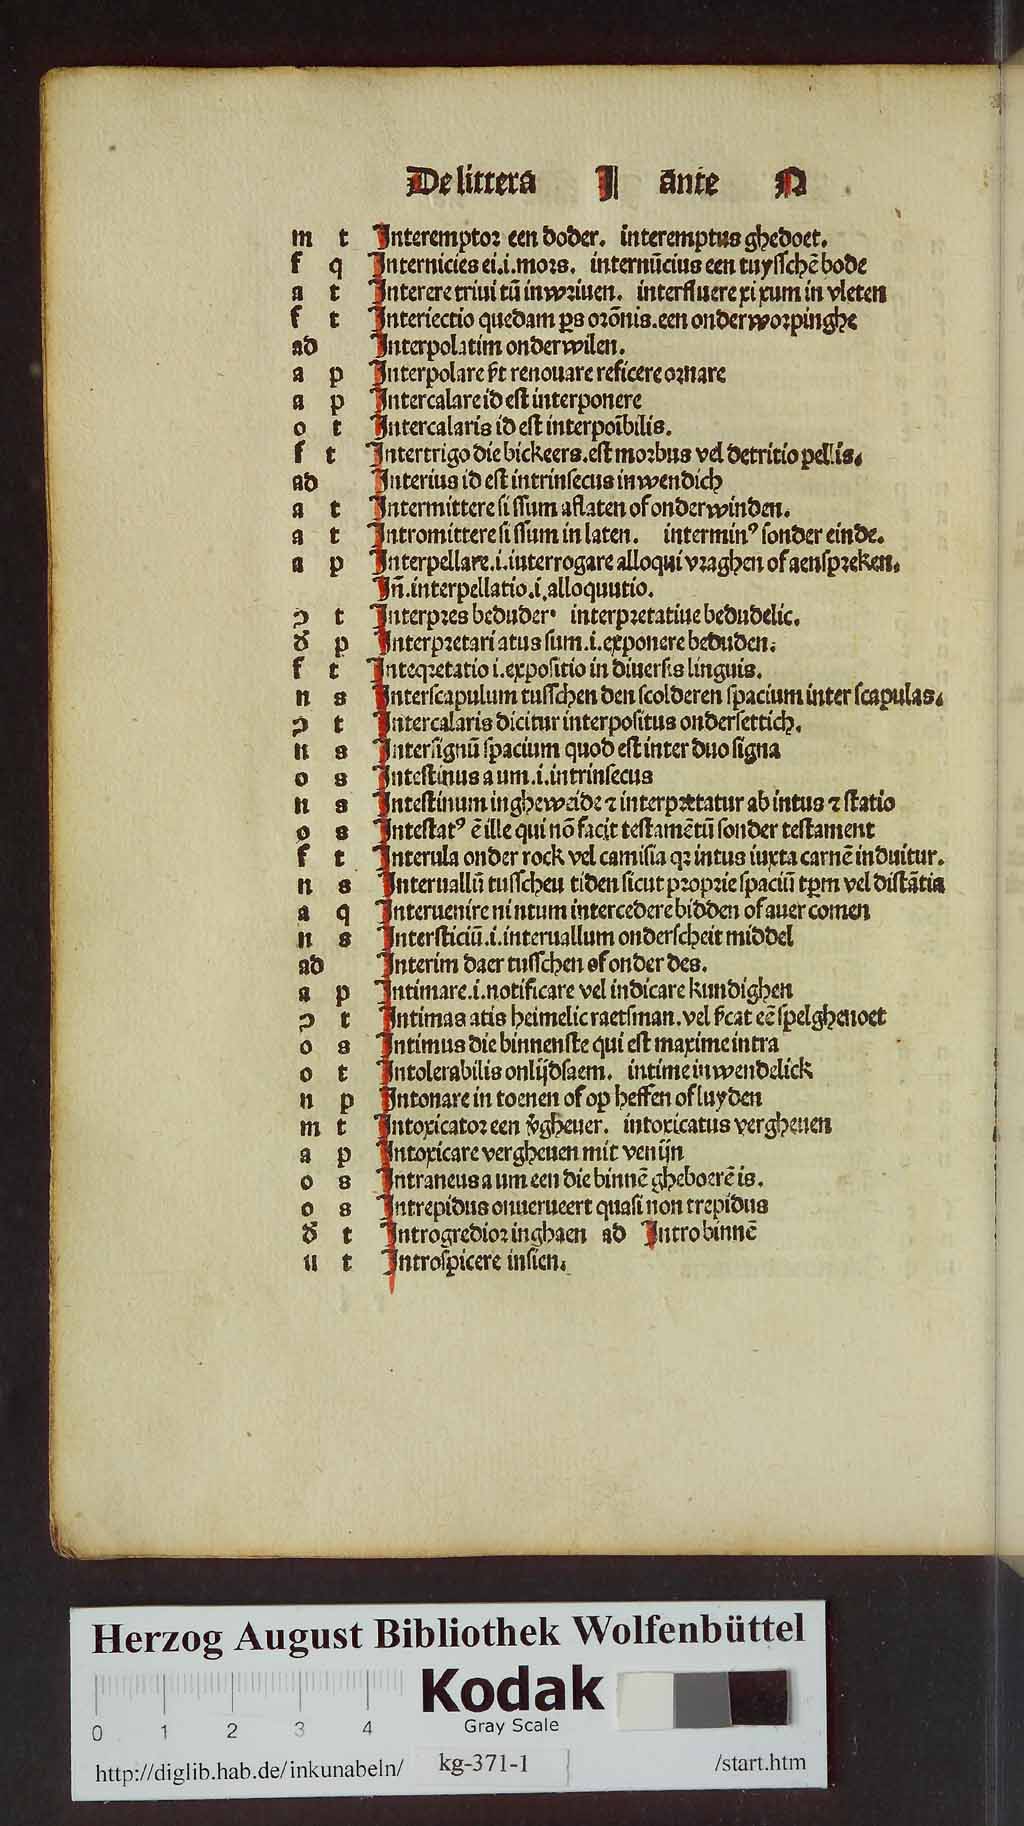 De littera I ante N
m t Interemptor een doder. interemptus ghedoet.
f q Internicies ei.i.mors. internūcius een tuysschē bode
a t Interere triui tū inwriuen. interfluere xi xum in vleten
f t Interiectio quedam ꝑs orōnis.een onderworpinghe
ad Interpolatim onderwilen.
a p Interpolare s̄t renouare reficere ornare
a p Intercalare id est interponere
o t Intercalaris id est interpoībilis.
f t Intertrigo die bickeers.est morbus vel detritio pellis.
ad Interius id est intrinsecus inwendich
a t Intermittere si ssum aflaten of onderwinden.
a t Intromittere si ssum in laten. intermin⁹ sonder einde.
a p Interpellare.i.iuterrogare alloqui vraghen of aenspreken.
Iñ.interpellatio.i.alloquutio.
ꝯ t Interpres beduder. interpretatiue bedudelic.
ꝺ p Interpretari atus sum.i.exponere beduden.
f t Inteqretatio i.expositio in diuersis linguis.
n s Interscapulum tusschen den scolderen spacium inter scapulas.
ꝯ t Intercalaris dicitur interpositus ondersettich.
n s Intersignū spacium quod est inter duo signa
o s Intestinus a um.i.intrinsecus
n s Intestinum ingheweide ⁊ interpretatur ab intus ⁊ statio
o s Intestat⁹ ē ille qui nō facit testamētū sonder testament
f t Interula onder rock vel camisia qꝛ intus iuxta carnē induitur.
n s Interuallū tusscheu tiden sicut proprie spaciū tꝑm vel distātia
a q Interuenire ni ntum intercedere bidden of auer comen
n s Intersticiū.i.interuallum onderscheit middel
ad Interim daer tusschen of onder des.
a p Intimare.i.notificare vel indicare kundighen
ꝯ t Intimas atis heimelic raetsman.vel s̄cat eē spelghenoet
o s Intimus die binnenste qui est maxime intra
o t Intolerabilis onlijdsaem. intime inwendelick
n p Intonare in toenen of op heffen of luyden
m t Intoxicator een v̄gheuer. intoxicatus vergheuen
a p Intoxicare vergheuen mit venijn
o s Intraneus a um een die binnē gheboerē is.
o s Intrepidus onuerueert quasi non trepidus
ꝺ t Introgredior inghaen ad Intro binnē
u t Introspicere insien.
Herzog August Bibliothek Wolfenbüttel
Kodak
Gray Scale
0 1 2 3 4
http://diglib.hab.de/inkunabeln/ kg-371-1 /start.htm